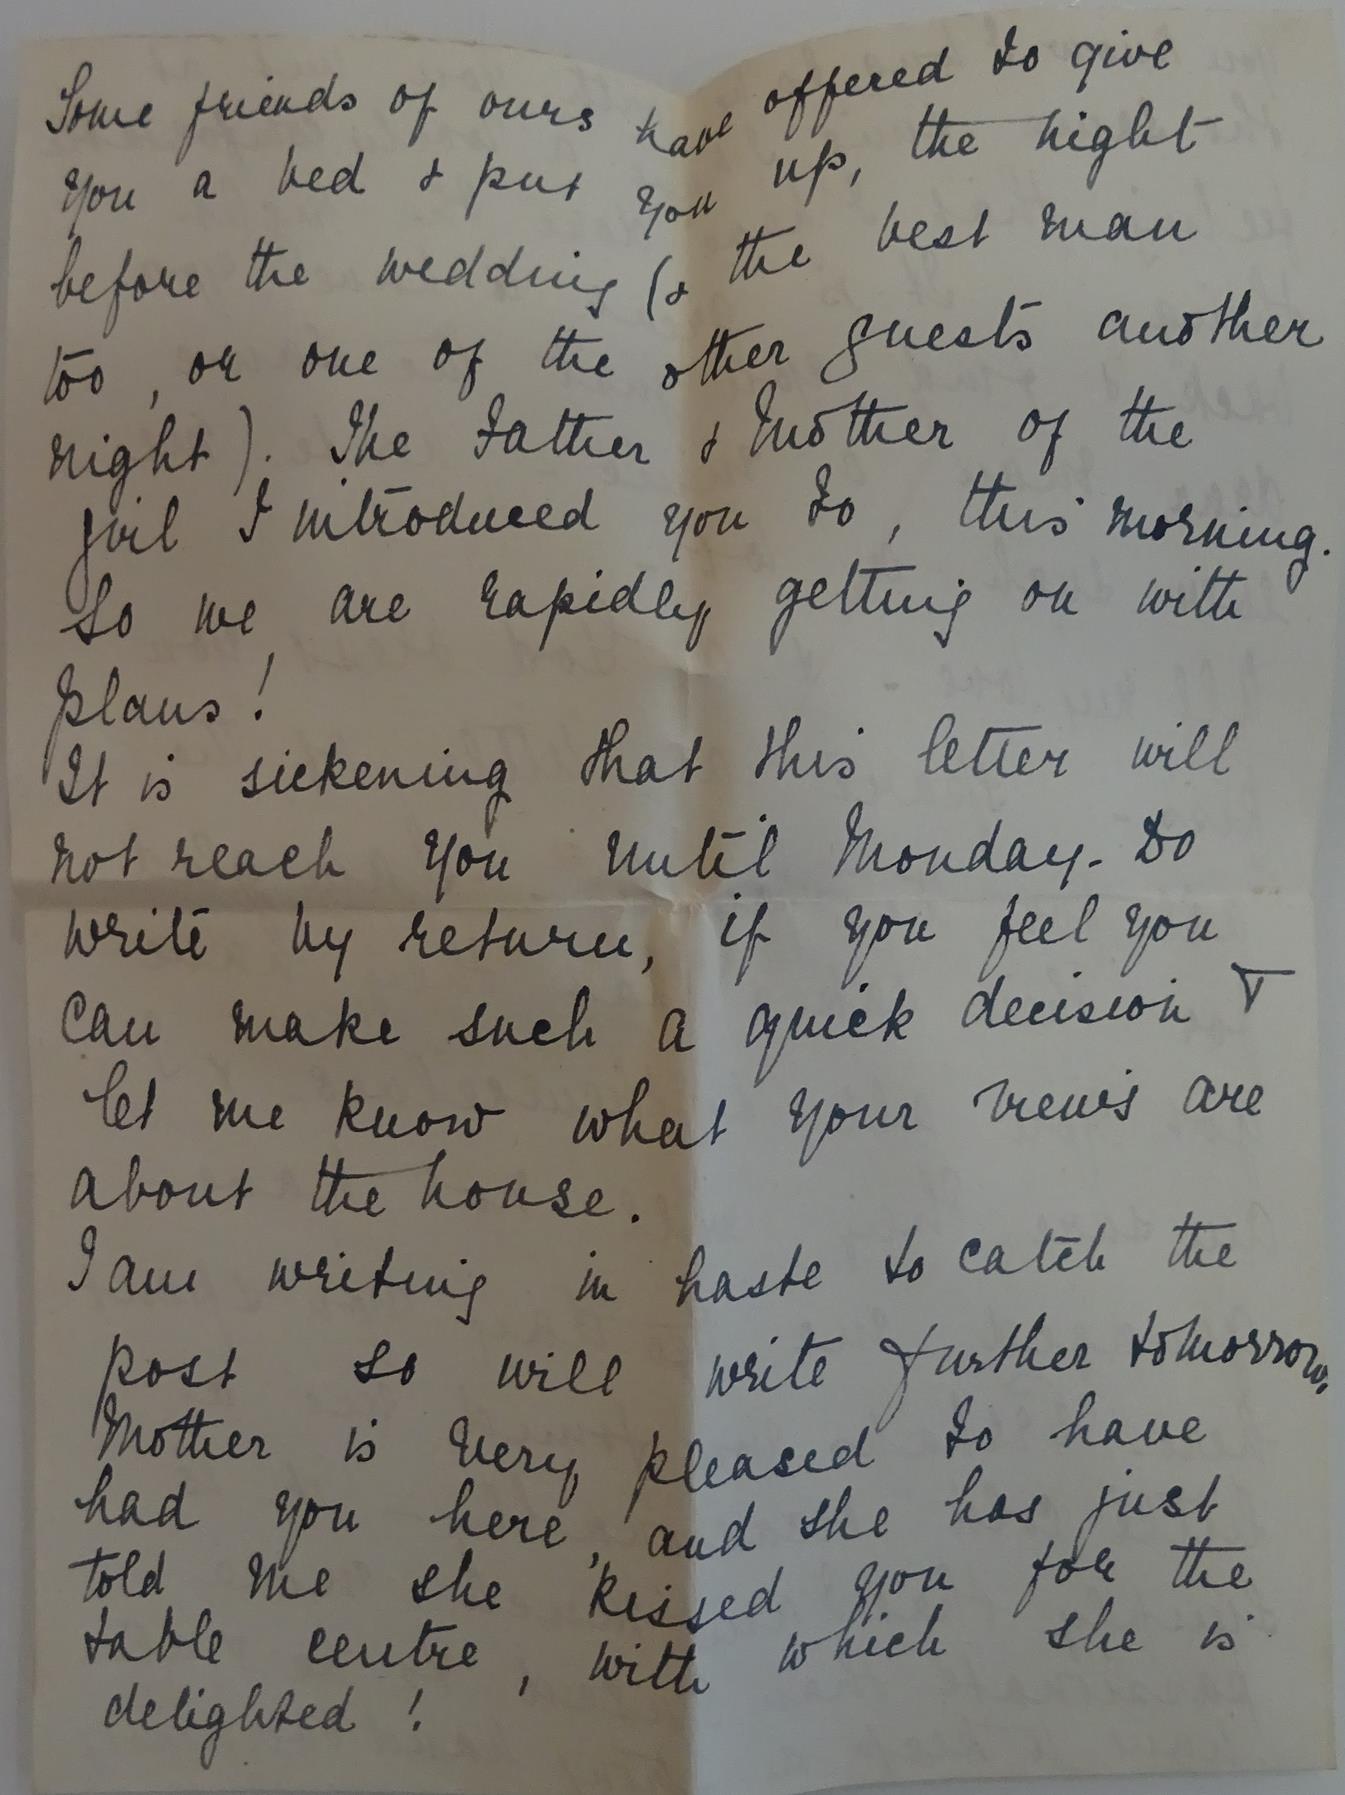 Some friends of ours have offered to give
you a bed & put you up, the night
before the wedding (& the best man
too, or one of the other guests another
night). The Father & Mother of the
girl I introduced you to, this morning.
So we are rapidly getting on with
plans!
It is sickening that this letter will
not reach you until Monday. Do
write by return, if you feel you
can make such a quick decision &
let me know what your views are
about the house.
I am writing in haste to catch the
post so will write further tomorrow.
Mother is very pleased to have
had you here, and she has just
told me she kissed you for the
table centre, with which she is
delighted!